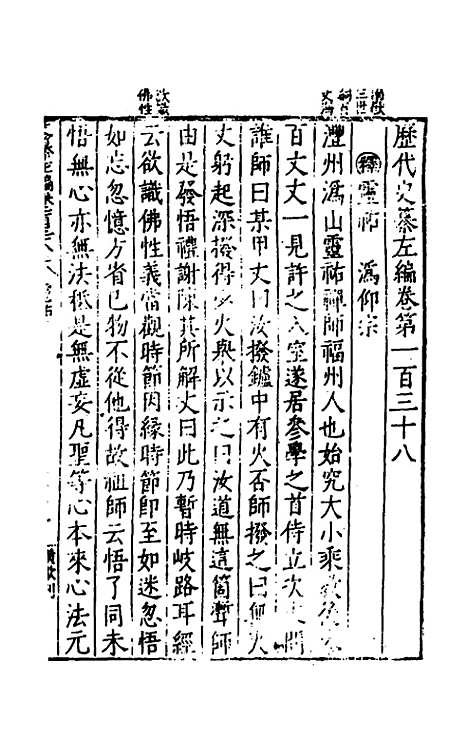 歷代史纂左編卷第一百三十八
釋 靈祐 溈仰宗
灃州溈山靈祐禪師福州人也始究大小乘敎後
百丈丈一見許之入室遂居參學之首侍立次丈問
誰師曰某甲丈曰汝撥鑪中有火否師撥之曰無火
丈躬起深撥得少火舉以示之曰汝道無這箇聻師
由是發悟禮謝陳其所解丈曰此乃暫時岐路耳經
云欲識佛性義當觀時節因緣時節即至如迷忽悟
如忘忽憶方省已物不從他得故祖師云悟了同未
悟無心亦無法秖是無虛妄凡聖等心本來心法元
佛性